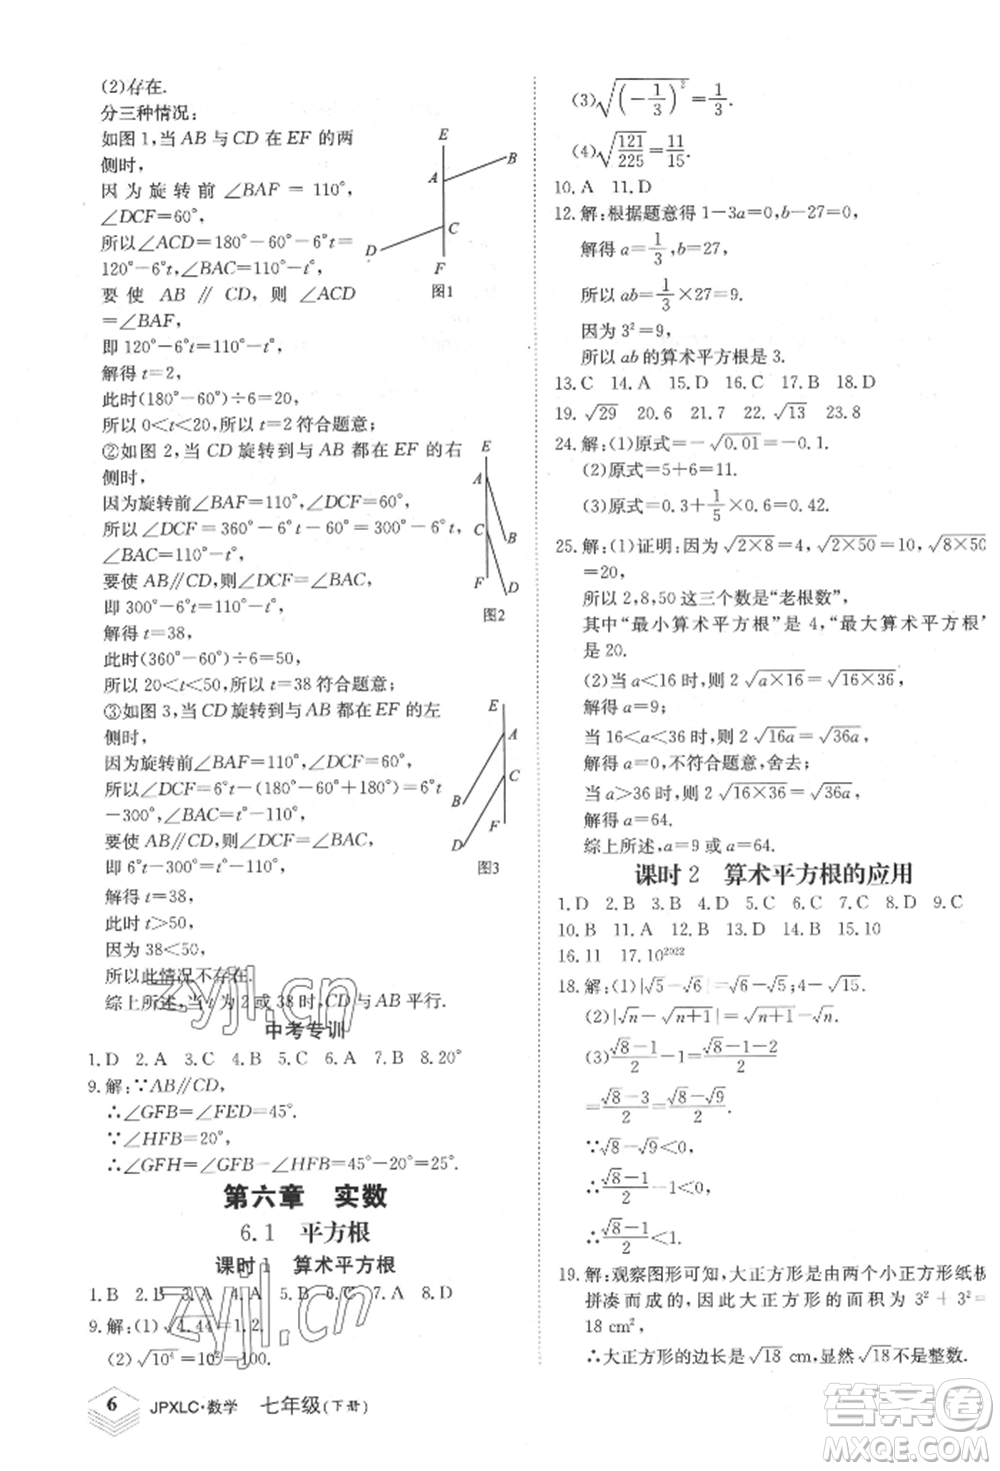 (2)存在.
分三种情况:
如图1,当AB与CD在EF的两
侧时,
因为旋转前∠BAF=110°,
∠DCF=60°,
所以∠ACD=180°-60°-6°t=
120°-6°t,∠BAC=110°-t°,
要使AB∥CD,则∠ACD
=∠BAF,
即120°-6°t=110°-t°,
解得t=2,
此时(180°-60°)÷6=20,
所以0<t<20,所以t=2符合题意;
②如图2,当CD旋转到与AB都在EF的右
侧时,
因为旋转前∠BAF=110°,∠DCF=60°,
所以∠DCF=360°-6°t-60°=300°-6°t,
∠BAC=110°-t°,
要使AB∥CD,则∠DCF=∠BAC,
即300°-6°t=110°-t°,
解得t=38,
此时(360°-60°)÷6=50,
所以20<t<50,所以t=38符合题意;
③如图3,当CD旋转到与AB都在EF的左
侧时,
因为旋转前∠BAF=110°,∠DCF=60°,
所以∠DCF=6°t-(180°-60°+180°)=6°t
-300°,∠BAC=t°-110°,
要使AB∥CD,则∠DCF=∠BAC,
即6°t-300°=t°-110°,
解得t=38,
此时t>50,
因为38<50,
所以此情况不存在.
综上所述,当t为2或38时,CD与AB平行.
E
B
A
C
D
F
图1
E
A
C
B
F
D
图2
E
A
C
B
F
D
图3
中考专训
1.D 2.A 3.C 4.B 5.C 6.A 7.B 8.20°
9.解:∵AB∥CD,
∴∠GFB=∠FED=45°.
∵∠HFB=20°,
∴∠GFH=∠GFB-∠HFB=45°-20°=25°.
第六章 实数
6.1 平方根
课时1 算术平方根
1.B 2.B 3.A 4.A 5.C 6.A 7.A 8.D
9.解:(1)√1.44=1.2.
(2)√10⁴=10²=100.
6 JPXLC·数学 七年级(下册)
(3)√(-1/3)²=1/3.
(4)√121/225=11/15.
10.A 11.D
12.解:根据题意得1-3a=0,b-27=0,
解得a=1/3,b=27,
所以ab=1/3×27=9.
因为3²=9,
所以ab的算术平方根是3.
13.C 14.A 15.D 16.C 17.B 18.D
19.√29 20.6 21.7 22.√13 23.8
24.解:(1)原式=-√0.01=-0.1.
(2)原式=5+6=11.
(3)原式=0.3+1/5×0.6=0.42.
25.解:(1)证明:因为√2×8=4,√2×50=10,√8×50
=20,
所以2,8,50这三个数是“老根数”,
其中“最小算术平方根”是4,“最大算术平方根”
是20.
(2)当a<16时,则2√a×16=√16×36,
解得a=9;
当16<a<36时,则2√16a=√36a,
解得a=0,不符合题意,舍去;
当a>36时,则2√16×36=√36a,
解得a=64.
综上所述,a=9或a=64.
课时2 算术平方根的应用
1.D 2.B 3.B 4.D 5.C 6.C 7.C 8.D 9.C
10.B 11.A 12.B 13.D 14.B 15.10
16.11 17.10²⁰²²
18.解:(1)|√5-√6|=√6-√5;4-√15.
(2)|√n-√n+1|=√n+1-√n.
(3)√8-1/2-1=√8-1-2/2
=√8-3/2=√8-√9/2.
∵√8-√9<0,
∴√8-1/2-1<0,
∴√8-1/2<1.
19.解:观察图形可知,大正方形是由两个小正方形纸板
拼凑而成的,因此大正方形的面积为3²+3²=
18 cm²,
∴大正方形的边长是√18 cm,是不是整数.
zyjl.cn
zyjl.cn
答案圈
MXQE.COM